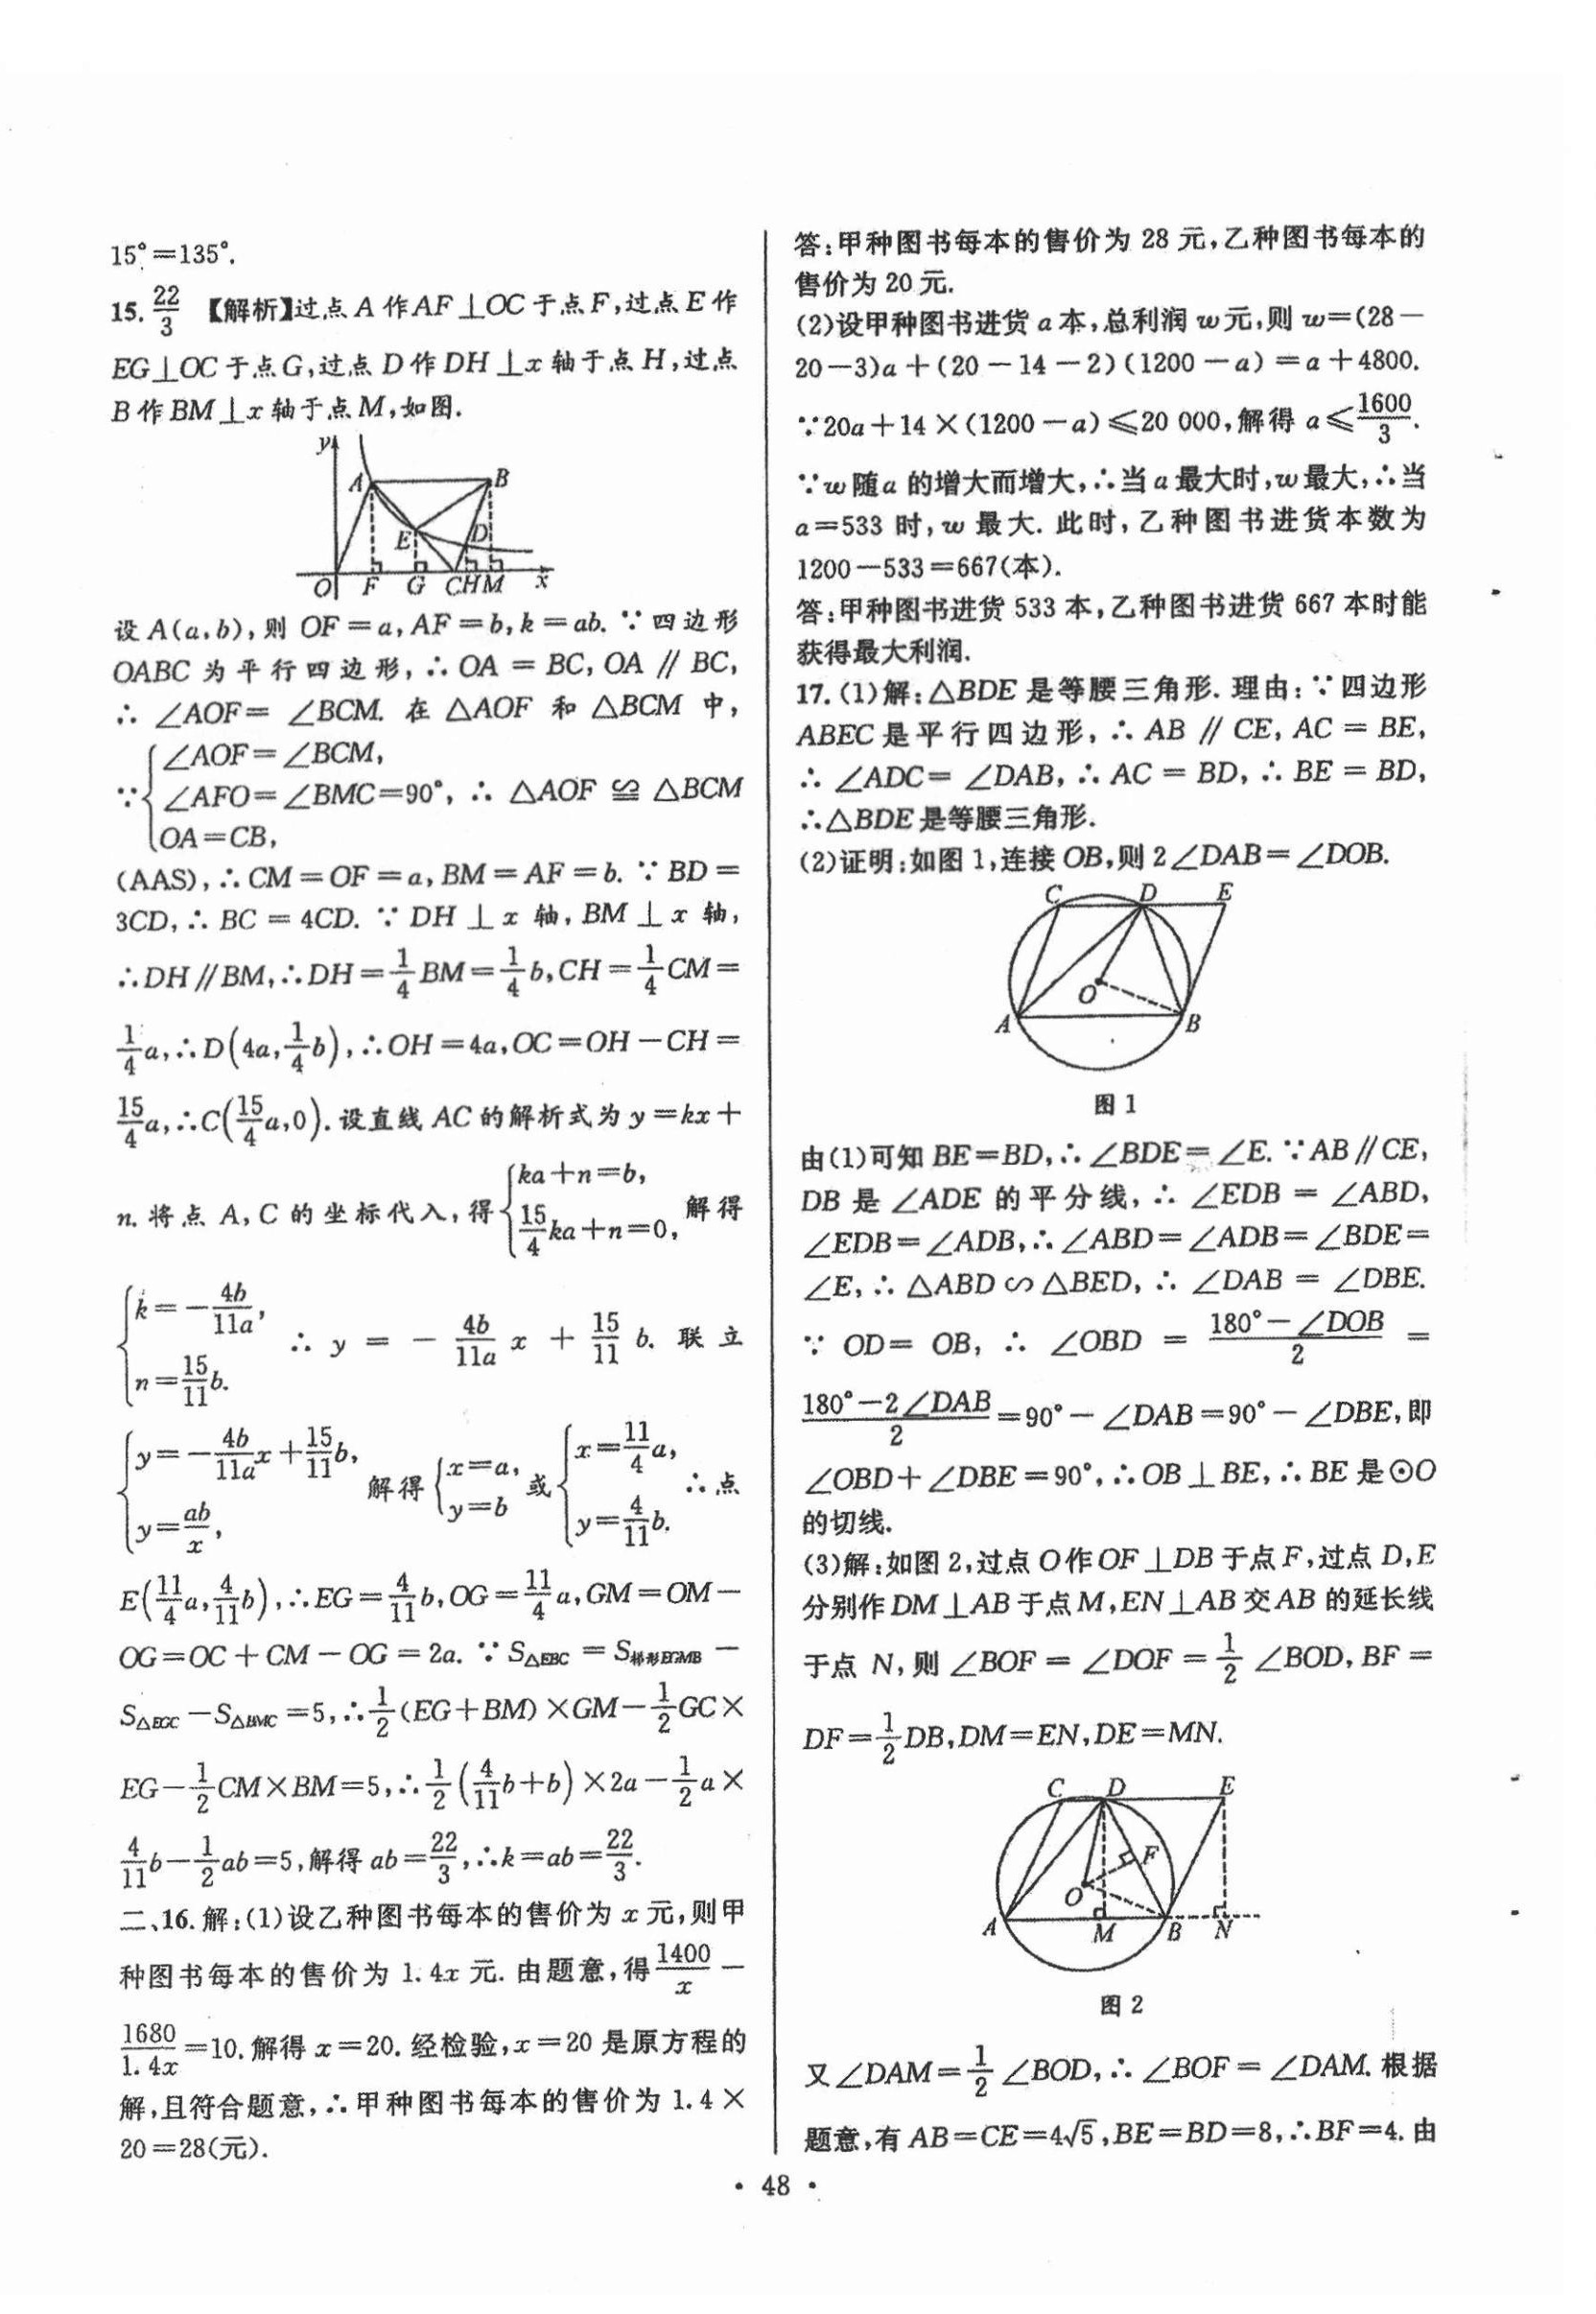 15°=135°.
15. 22/3 【解析】过点 A 作 AF⊥OC 于点 F,过点 E 作
EG⊥OC 于点 G,过点 D 作 DH⊥x 轴于点 H,过点
B 作 BM⊥x 轴于点 M,如图.
y
A
B
E
D
O F G C H M x
设 A(a,b),则 OF=a,AF=b,k=ab. ∵四边形
OABC 为平行四边形,∴OA=BC,OA∥BC,
∴∠AOF=∠BCM. 在△AOF 和△BCM 中,
∵{∠AOF=∠BCM,
∠AFO=∠BMC=90°, ∴△AOF≌△BCM
OA=CB,
(AAS),∴CM=OF=a,BM=AF=b. ∵BD=
3CD,∴BC=4CD. ∵DH⊥x 轴,BM⊥x 轴,
∴DH∥BM,∴DH=1/4 BM=1/4 b,CH=1/4 CM=
1/4 a,∴D(4a,1/4 b),∴OH=4a,OC=OH-CH=
15/4 a,∴C(15/4 a,0). 设直线 AC 的解析式为 y=kx+
n. 将点 A,C 的坐标代入,得{ka+n=b, 15/4 ka+n=0, 解得
{k=-4b/11a, n=15/11 b. ∴y=-4b/11a x+15/11 b. 联立
{y=-4b/11a x+15/11 b, y=ab/x, 解得{x=a, y=b 或{x=11/4 a, y=4/11 b. ∴点
E(11/4 a,4/11 b),∴EG=4/11 b,OG=11/4 a,GM=OM-
OG=OC+CM-OG=2a. ∵S△EBC=S梯形EGMB-
S△EGC-S△BMC=5,∴1/2(EG+BM)×GM-1/2 GC×
EG-1/2 CM×BM=5,∴1/2(4/11 b+b)×2a-1/2 a×
4/11 b-1/2 ab=5,解得 ab=22/3,∴k=ab=22/3.
二、16. 解:(1)设乙种图书每本的售价为 x 元,则甲
种图书每本的售价为 1.4x 元. 由题意,得1400/x-
1680/1.4x=10. 解得 x=20. 经检验,x=20 是原方程的
解,且符合题意,∴甲种图书每本的售价为 1.4×
20=28(元).
答:甲种图书每本的售价为 28 元,乙种图书每本的
售价为 20 元.
(2)设甲种图书进货 a 本,总利润 w 元,则 w=(28-
20-3)a+(20-14-2)(1200-a)=a+4800.
∵20a+14×(1200-a)≤20 000,解得 a≤1600/3.
∵w 随 a 的增大而增大,∴当 a 最大时,w 最大,∴当
a=533 时,w 最大. 此时,乙种图书进货本数为
1200-533=667(本).
答:甲种图书进货 533 本,乙种图书进货 667 本时能
获得最大利润.
17. (1)解:△BDE 是等腰三角形. 理由:∵四边形
ABEC 是平行四边形,∴AB∥CE,AC=BE,
∴∠ADC=∠DAB,∴AC=BD,∴BE=BD,
∴△BDE 是等腰三角形.
(2)证明:如图 1,连接 OB,则 2∠DAB=∠DOB.
C D E
O
A B
图 1
由(1)可知 BE=BD,∴∠BDE=∠E. ∵AB∥CE,
DB 是∠ADE 的平分线,∴∠EDB=∠ABD,
∠EDB=∠ADB,∴∠ABD=∠ADB=∠BDE=
∠E,∴△ABD∽△BED,∴∠DAB=∠DBE.
∵OD=OB,∴∠OBD=(180°-∠DOB)/2=
(180°-2∠DAB)/2=90°-∠DAB=90°-∠DBE,即
∠OBD+∠DBE=90°,∴OB⊥BE,∴BE 是⊙O
的切线.
(3)解:如图 2,过点 O 作 OF⊥DB 于点 F,过点 D,E
分别作 DM⊥AB 于点 M,EN⊥AB 交 AB 的延长线
于点 N,则∠BOF=∠DOF=1/2∠BOD,BF=
DF=1/2 DB,DM=EN,DE=MN.
C D E
F
O
A M B N
图 2
又∠DAM=1/2∠BOD,∴∠BOF=∠DAM. 根据
题意,有 AB=CE=4√5,BE=BD=8,∴BF=4. 由
· 48 ·